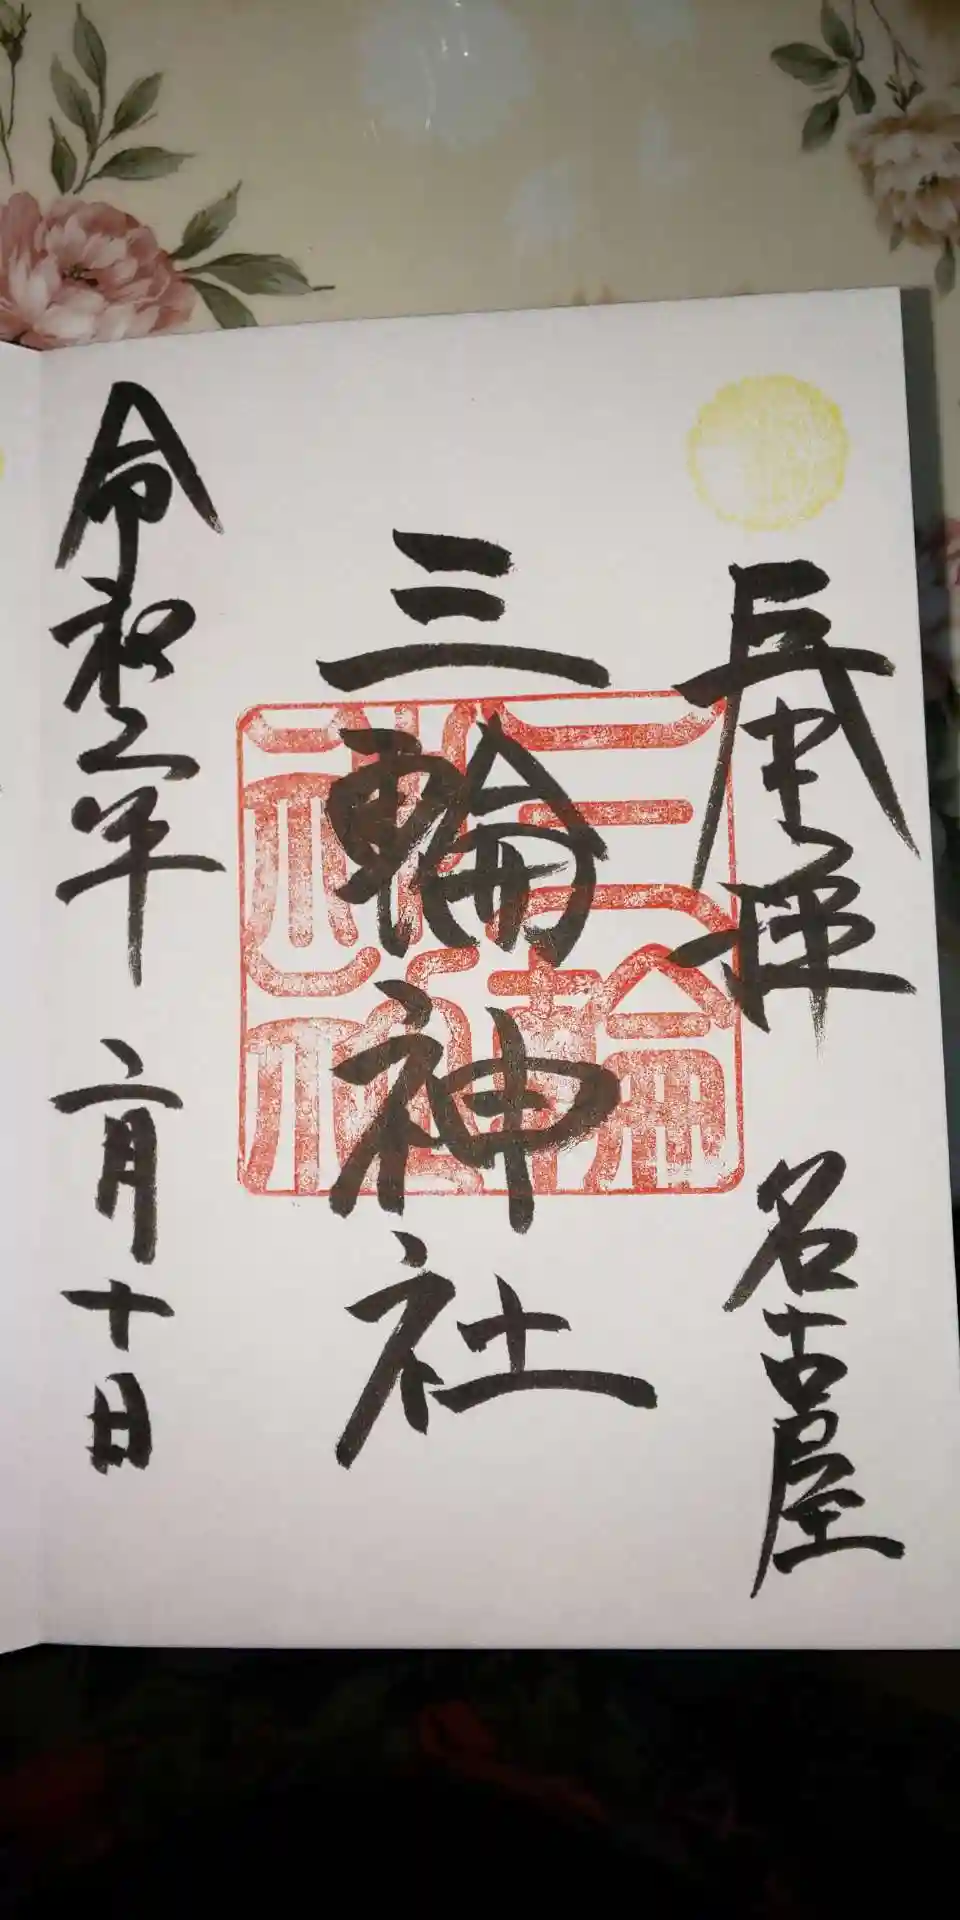 奉拝 名古屋
三輪神社
三輪
神社
令和二年 二月十日